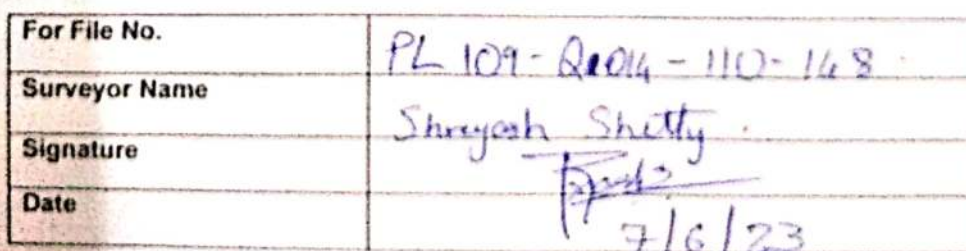 For File No. PL 109-Q1014-110-148
Surveyor Name Shreyash Shetty.
Signature
Date 7/6/23